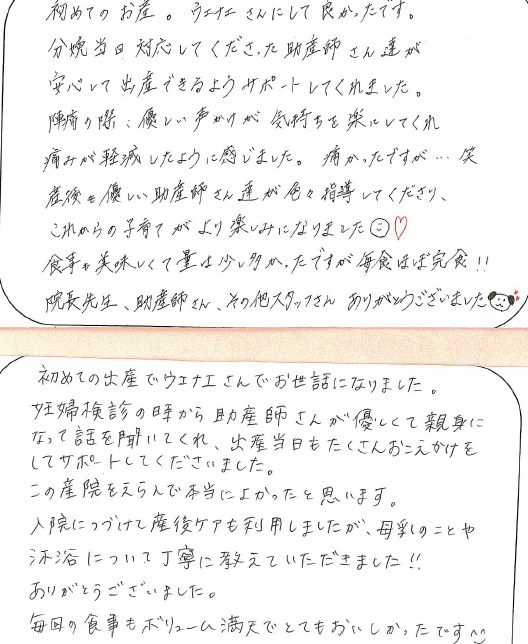 初めてのお産。ウエナエさんにして良かったです。
分娩当日対応してくださった助産師さん達が
安心して出産できるようサポートしてくれました。
陣痛の際、優しい声かけが気持ちを楽にしてくれ
痛みが軽減したように感じました。痛かったですが…笑
産後も優しい助産師さん達が色々指導してくださり、
これからの子育てがより楽しみになりました
食事も美味しくて量は少し多かったですが毎食ほぼ完食!!
院長先生、助産師さん、その他スタッフさんありがとうございました
初めての出産でウエナエさんでお世話になりました。
妊婦検診の時から助産師さんが優しくて親身に
なって話を聞いてくれ、出産当日もたくさんおこえかけを
してサポートしてくださいました。
この産院をえらんで本当によかったと思います。
入院につづけて産後ケアも利用しましたが、母乳のことや
沐浴について丁寧に教えていただきました!!
ありがとうございました。
毎日の食事もボリューム満天でとてもおいしかったです